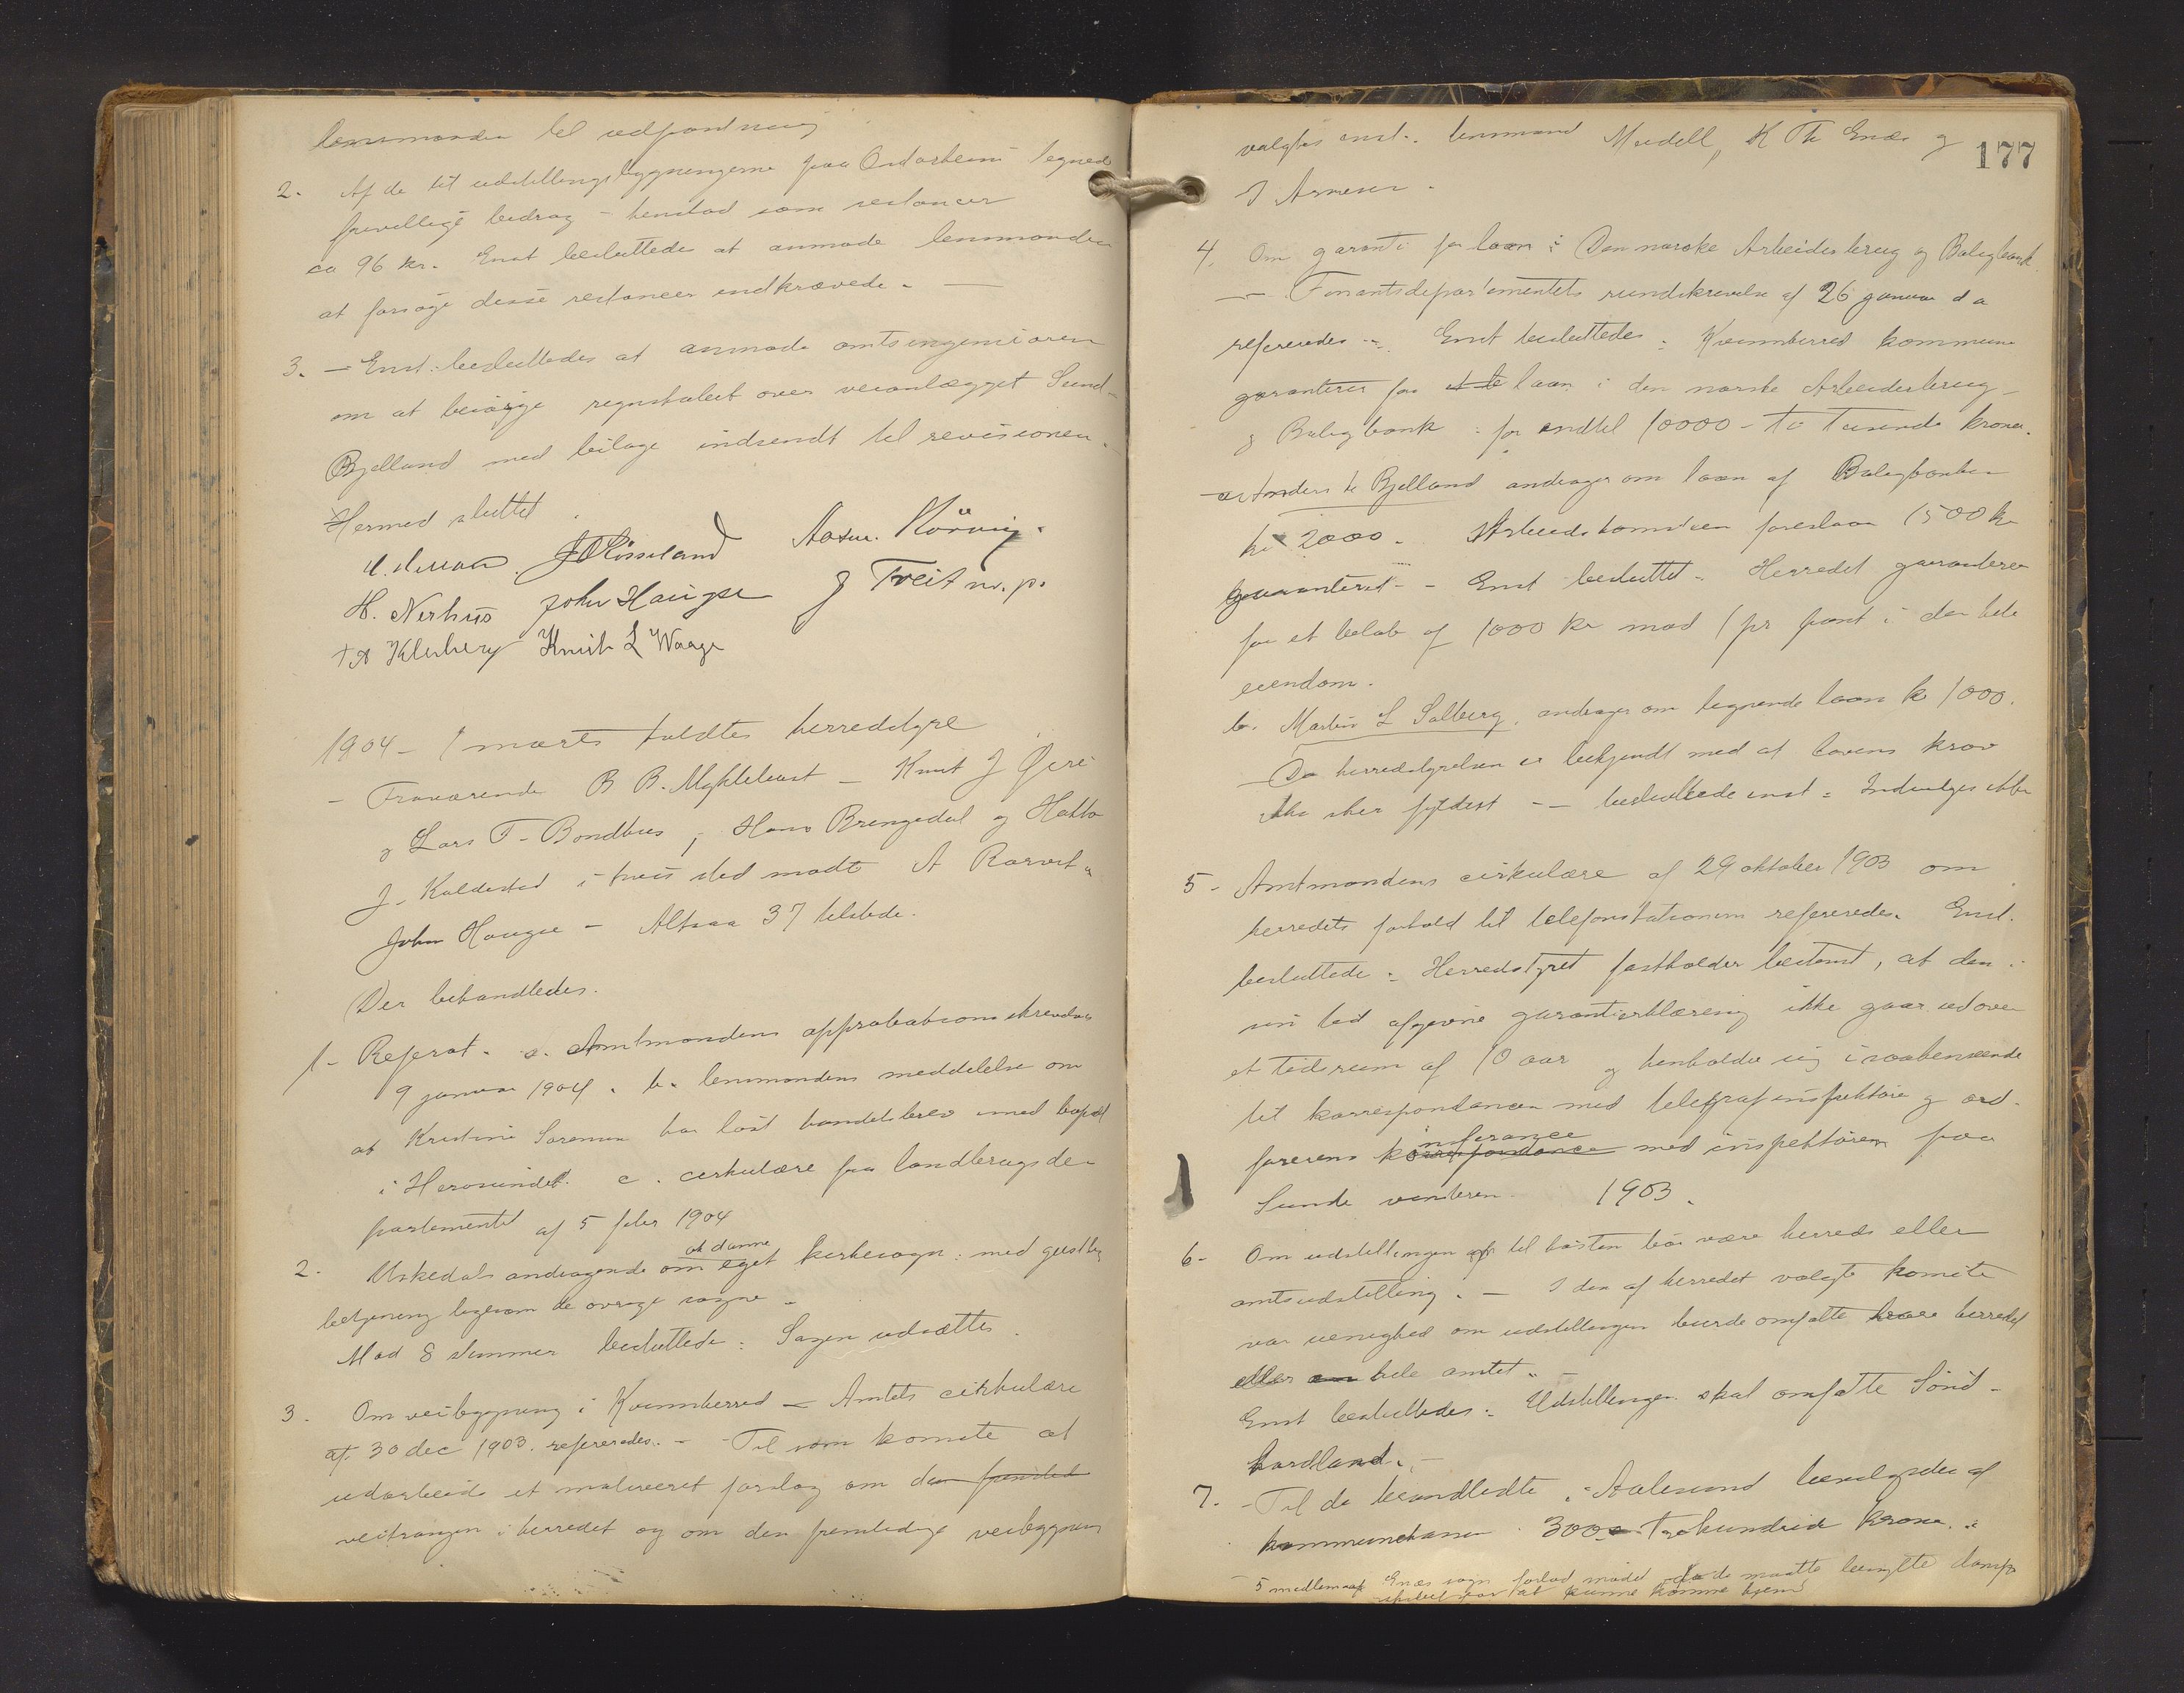 lensmanden til udpantning
2. Af de til udstillingsbygningerne paa Ødarheim tegnede
frivillige bidrag – henstod som restancer
ca 96 kr. Enst besluttede at anmode lensmanden
at forsøge disse restancer indkrævede. —
3. – Enst. besluttedes at anmode amtsingeniøren
om at besørge regnskabet over veianlægget Sund-
Bjelland med bilage indsendt til revisionen.
Hermed sluttet.
J Røsseland
H. Nerhus John Haugse J Treit m. p.
Knut L Waage
1904 – 1 marts holdtes herredstyre
– Fraværende B B. Myklebust – Knut J Øire
og Lars T. Bondhus, Hans Bringedal og Hatto
J. Kaldestad i hvis sted mødte A Rørvik og
John Haugse – Altsaa 37 tilstede.
Der behandledes.
1- Referat. a. Amtmandens approbationsskrivelse
9 januar 1904. b. lensmandens meddelelse om
at Kristine Sørensen har løst handelsbrev med bopæl
i Herøsundet. c. cirkulære fra landbrugsde-
partementet af 5 febr 1904
at danne
2. Uskedals andragende om eget kirkesogn: med geistlig
betjening ligesom de øvrige sogne –
Mod 8 stemmer besluttede: Sagen udsættes.
3. Om veibygning i Kvinnherred – Amtets cirkulære
af 30 dec 1903. refereredes. – Til som komite at
udarbeide et motiveret forslag om den fremtid
veitrangen i herredet og om den fremtidige veibygning
177
valgtes enst.: lensmand Meidell, K Th Enæs og
J Arnesen.
4. Om garanti for laan i Den norske Arbeiderbrug og Boligbank.
–– Finantsdepartementets rundskrivelse af 26 januar d a
refereredes. Enst besluttedes: Kvinnherred kommune
garanterer for laan i den norske Arbeiderbrug-
og Boligbank: for indtil 10000 – ti tusende kroner.
Bjelland andrager om laan af Boligbanken
kr 2000. Arbeidskomiteen foreslaar 1500 kr
garanteret – Enst besluttet. Herredet garanterer
for et beløb af 1000 kr mod 1 pr pant i den hele
eiendom.
b. Martin L Salberg, andrager om lignende laan kr 1000.
Da herredstyrelsen er bekjendt med at lovens krav
ikke sker fyldest –– besluttede enst: Indvilges ikke
5- Amtmandens cirkulære af 29 oktober 1903 om
herredets forhold til telefonstationen refereredes. Enst.
besluttede: Herredstyret fastholder bestemt, at den i
sin tid afgivne garantierklæring ikke gaar udover
et tidsrum af 10 aar og henholder sig i saahenseende
til korrespondancen med telegrafinspektøren og ord-
nferance
førerens korrespondance med inspektøren paa
Sunde vinteren 1903.
6- Om udstillingen til høsten bør være herreds eller
amtsudstilling. – I den af herredet valgte komite
var uenighed om udstillingen burde omfatte herredet
eller hele amtet.
Enst besluttedes: Udstillingen skal omfatte Sønd-
hordland. –
7. – Til de brandlidte i Aalesund bevilgedes af
kommunekassen 300 – Trehundrede kroner.
5 medlemmer Enæs sogn forlod mødet da de maatte benytte damp-
skibet for at kunne komme hjem